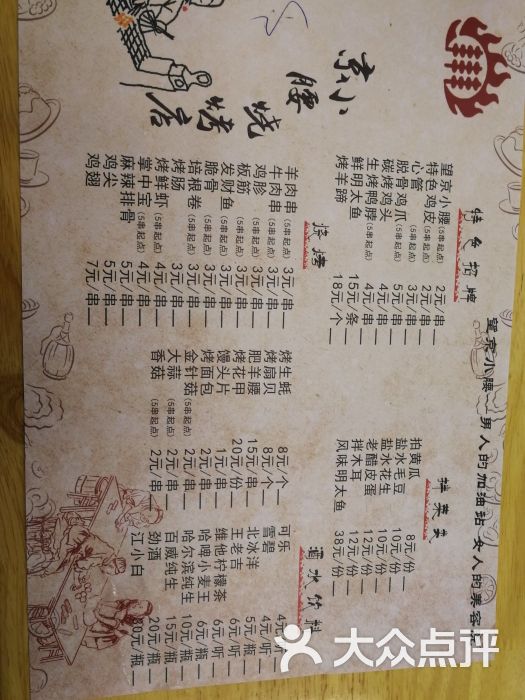 京小腰
烧烤店
望京小腰—男人的加油站 女人的美容
特色招牌
望京小腰(5串起点) 2元/串
特色鸡皮(5串起点) 2元/串
心管(5串起点) 3元/串
脱骨鸡爪(5串起点) 5元/串
碳烤鸡头 4元/串
生烤鸭脖(5串起点) 4元/串
鲜明太鱼 15元/条
烤羊蹄 18元/个
烧烤
羊肉串(5串起点) 3元/串
牛肉串(5串起点) 3元/串
鸡胗(5串起点) 3元/串
板筋(5串起点) 3元/串
发财鱼(5串起点) 3元/串
脆骨(5串起点) 3元/串
培根卷(5串起点) 3元/串
烤肠(5串起点) 3元/串
烤鲜虾(5串起点) 4元/串
掌中宝(5串起点) 4元/串
麻辣排骨 5元/串
鸡尖 5元/串
鸡翅 7元/串
烤生蚝 8元/个
烤扇贝 8元/个
肥羊腰 15元/串
烤花甲 20元/份
馒头片 1元/串
烤面包 2元/串
金针菇(5串起点) 2元/串
大蒜(5串起点) 2元/串
香菇(5串起点) 2元/串
拌菜类
拍黄瓜 8元/份
盐水毛豆 10元/份
盐水花生 10元/份
老醋皮蛋 12元/份
拌木耳 12元/份
风味明太鱼 38元/份
酒水饮料
可乐 4元/听
雪碧 4元/听
北冰洋 5元/瓶
王老吉 6元/听
维他柠檬茶 6元/听
哈啤小麦王 6元/瓶
哈尔滨纯生 10元/瓶
百威纯生 15元/瓶
劲酒 20元/瓶
江小白 30元/瓶
大众点评